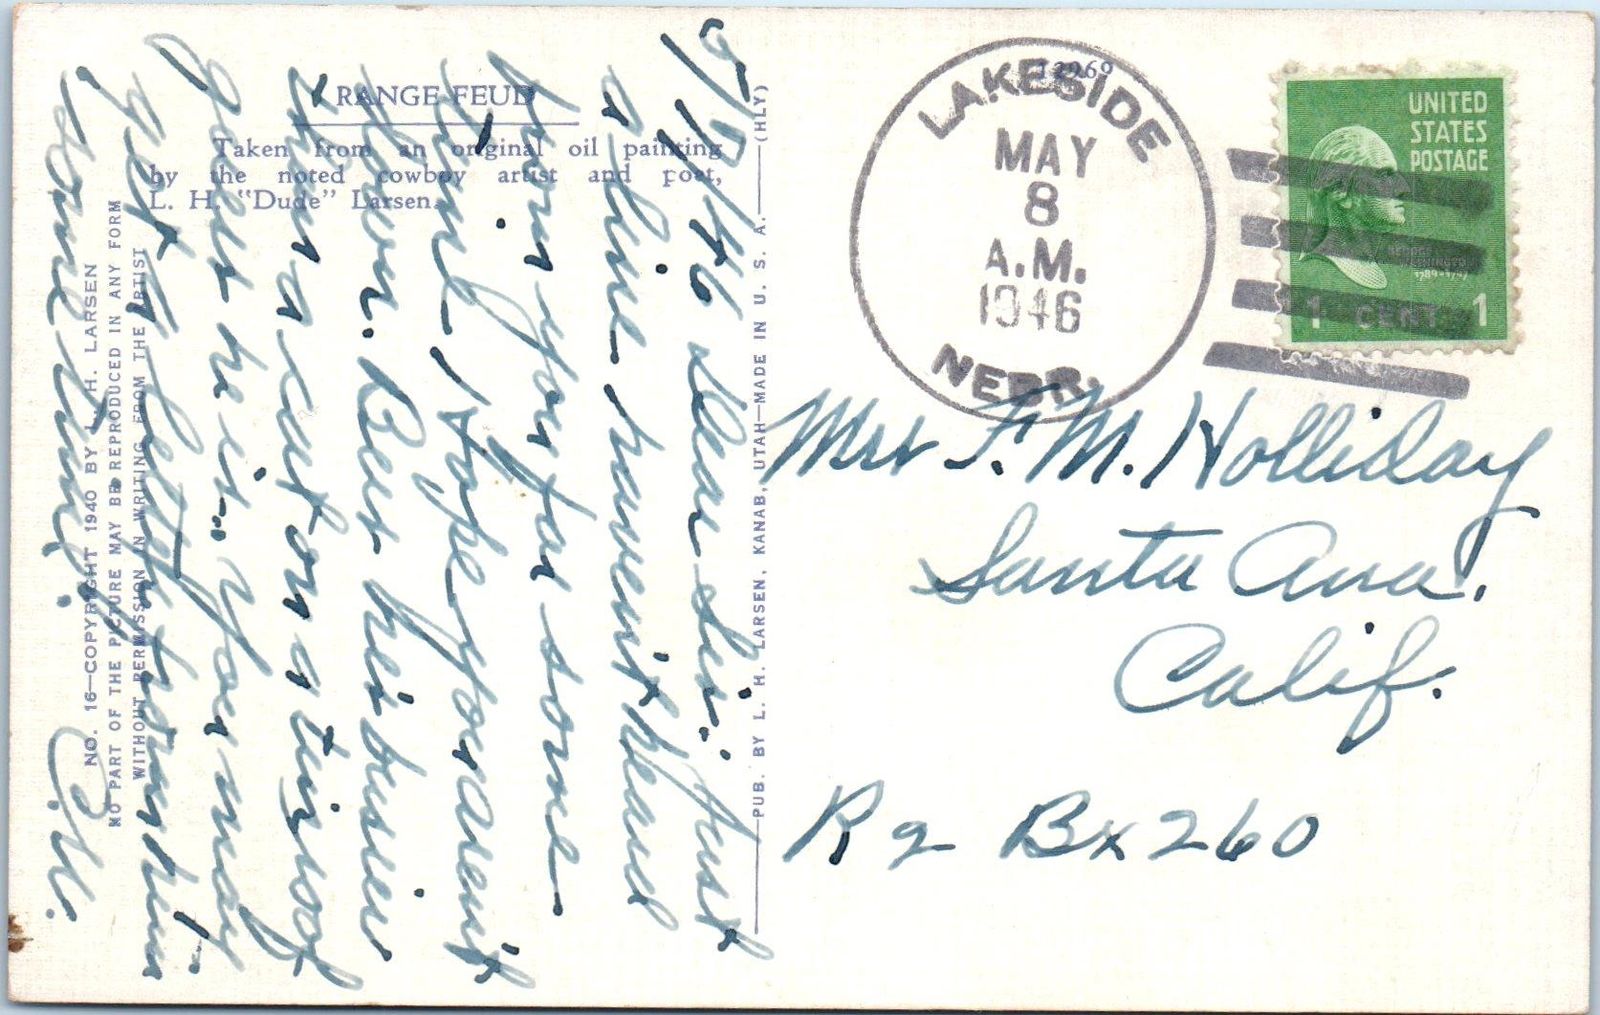 RANGE FEUD
Taken from an original oil painting
by the noted cowboy artist and poet,
L. H. "Dude" Larsen.
NO. 16—COPYRIGHT 1940 BY L. H. LARSEN
NO PART OF THE PICTURE MAY BE REPRODUCED IN ANY FORM
WITHOUT PERMISSION IN WRITING FROM THE ARTIST
PUB. BY L. H. LARSEN, KANAB, UTAH—MADE IN U. S. A.—(HLY)
5/7/46 Dear Sis: Just
a line, haven't heard
from you for some
time, Hope you aren't
down. he's busier
than a cat on a tin roof
guess he is. You may
get a letter from him
some time.
C.W.
LAKESIDE
MAY
8
A.M.
1946
NEBR.
UNITED
STATES
POSTAGE
1789-1797
1 CENT 1
Mrs F. M. Holliday
Santa Ana.
Calif.
R 2 Bx 260